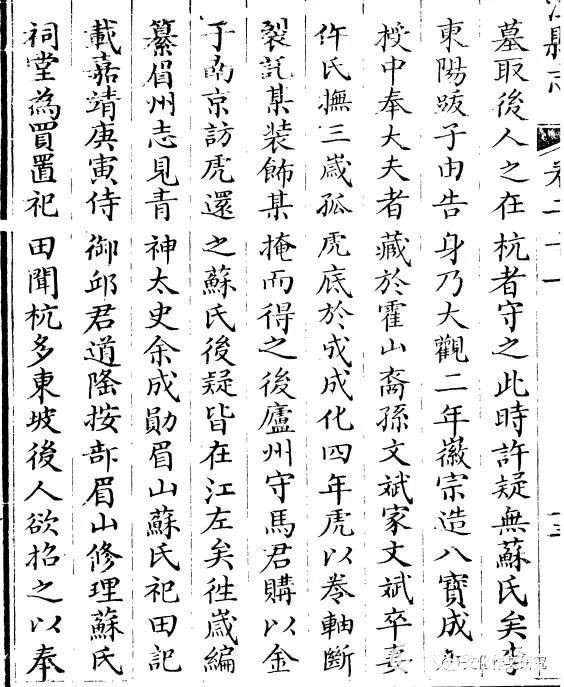 縣志 卷二十一
墓取後人之在杭者守之此時許疑無蘇氏矣李
東陽跋子由告身乃大觀二年徽宗造八寶成
授中奉大夫者藏於霍山裔孫文斌家文斌卒妻
仵氏撫三歲孤虎底於成成化四年虎以卷軸斷
裂託某装飾某掩而得之後廬州守馬君購以金
于南京訪虎還之蘇氏後疑皆在江左矣徃歲編
纂眉州志見青神太史余成勛眉山蘇氏祀田記
載嘉靖庚寅侍御邱君道隆按部眉山修理蘇氏
祠堂為買置祀田聞杭多東坡後人欲招之以奉